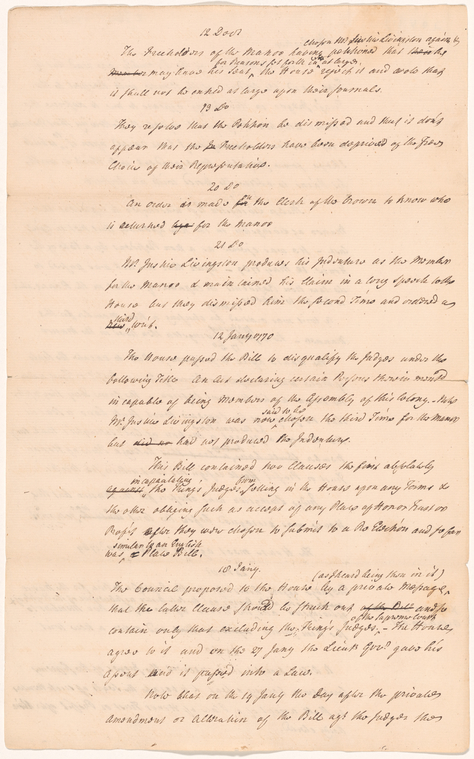 12 Decr
chosen Mr Justice Livingston again &
The Freeholders of the Manor having petitioned that
for Reasons set forth at large,
may have his seat, the House reject it and vote that
it shall not be entred at large upon their Journals.
13 Do
They resolve that the Petition be dismissed and that it dont
appear that the Freeholders have been deprived of the free
Choice of their Representative.
20 Do
An order is made the Clerk of the Crown to know who
is returned for the Manor
21 Do
Mr. Justice Livingston produces his Indenture as the Member
for the Manor & maintained his Claim in a long Speech to the
House but they dismissed him the second Time and ordered a
third writ.
12 Jany 1770
The House passed the Bill to disqualify the Judges under the
following Title An Act declaring certain Persons therein mentd
incapable of being Members of the Assembly of this Colony.
said to be
Mr. Justice Livingston was now chosen the third Time for the Manor
but had not produced the Indenture.
This Bill contained two Clauses the first absolutely
incapacitating from
the King's Judges sitting in the House upon any Terms &
the other obliging such as accept of any Place of Honor Trust or
Profit after they were chosen to submit to a Re Election and so far
similar to an English
was a Place Bill.
18 Jany.
The Council proposed to the House by a private Message,
that the latter Clause should be struck out and so
of the supreme Court
contain only that excluding the King's Judges. - The House
agree to it and on the 27 Jany the Lieut Govr gave his
Assent and it is passed into a Law.
Note that on the 19 Jany the Day after the private
Amendment or Alteration of the Bill agt the Judges the